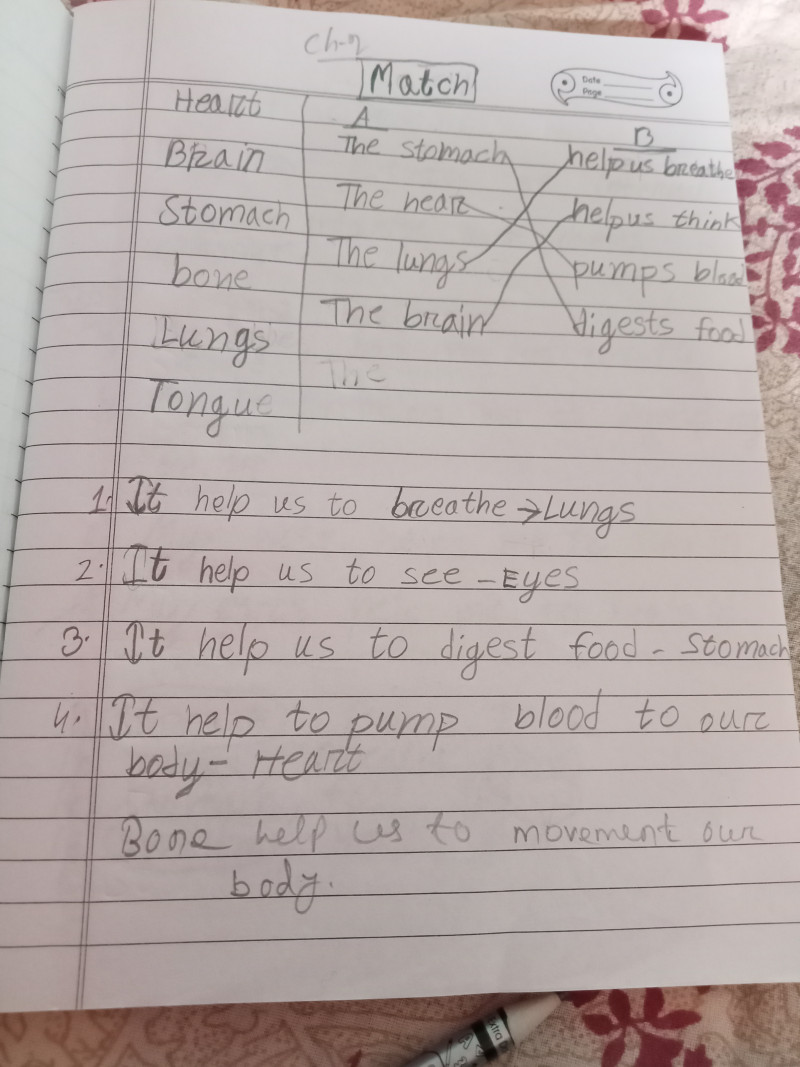 Ch-2
Match
Date
Page
Heart
Brain
Stomach
bone
Lungs
Tongue
A
The stomach
The heart
The lungs
The brain
The
B
help us breathe
help us think
pumps blood
digests food
1. It help us to breathe → Lungs
2. It help us to see - Eyes
3. It help us to digest food - Stomach
4. It help to pump blood to our
body - Heart
Bone help us to movement our
body.